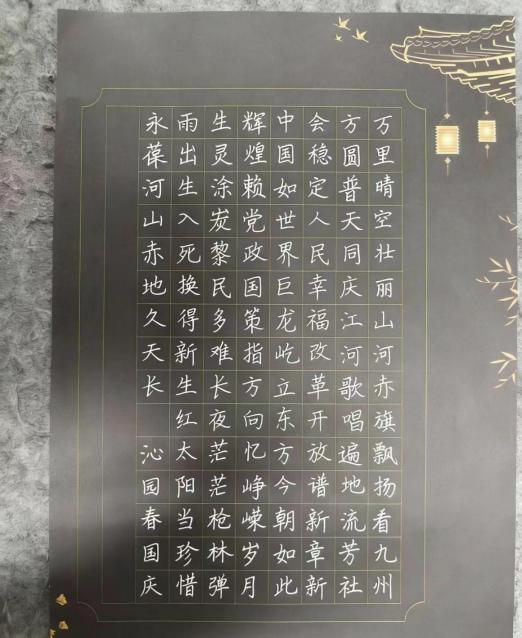 万里晴空壮丽山河赤旗飘扬看九州
方圆普天同庆江河歌唱遍地流芳社
会稳定人民幸福改革开放谱新章新
中国如世界巨龙屹立东方今朝如此
辉煌赖党政国策指方向忆峥嵘岁月
生灵涂炭黎民多难长夜茫茫枪林弹
雨出生入死换得新生红太阳当珍惜
永葆河山赤地久天长 沁园春国庆